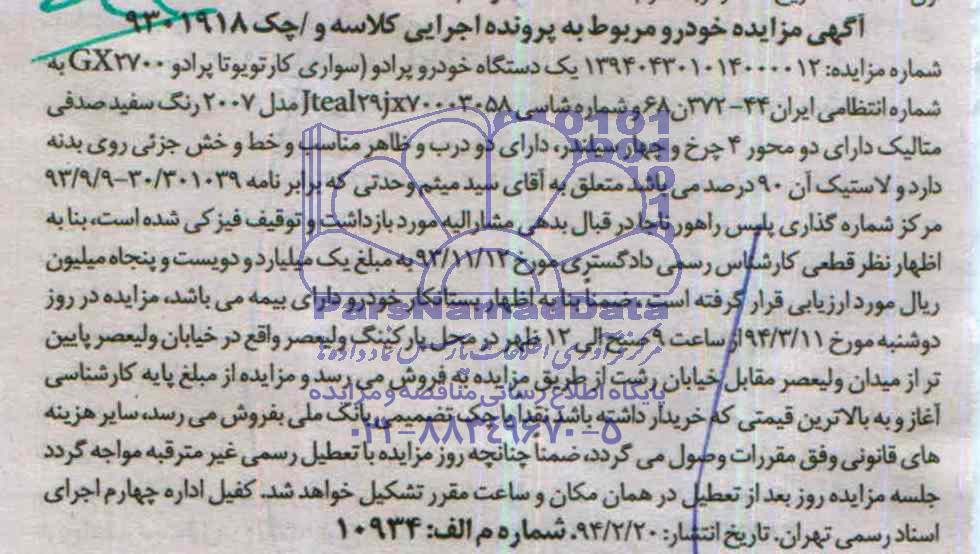 آگهی مزایده خودرو مربوط به پرونده اجرایی کلاسه و /چک ۹۳۰۱۹۱۸
شماره مزایده: ۱۳۹۴۰۴۳۰۱۰۱۴۰۰۰۰۱۲ یک دستگاه خودرو پرادو (سواری کار تویوتا پرادو GX۲۷۰۰ به
شماره انتظامی ایران ۴۴-۳۷۲ن۶۸ و شماره شاسی Jteal۲۹jx۷۰۰۰۳۰۵۸ مدل ۲۰۰۷ رنگ سفید صدفی
متالیک دارای دو محور ۴ چرخ و چهار سیلندر، دارای دو درب و ظاهر مناسب و خط و خش جزئی روی بدنه
دارد و لاستیک آن ۹۰ درصد می باشد متعلق به آقای سید میثم وحدتی که برابر نامه ۳۰/۳۰۱۰۳۹-۹۳/۹/۹
مرکز شماره گذاری پلیس راهور ناجا در قبال بدهی مشارالیه مورد بازداشت و توقیف فیزکی شده است، بنا به
اظهار نظر قطعی کارشناس رسمی دادگستری مورخ ۹۳/۱۱/۱۲ به مبلغ یک میلیارد و دویست و پنجاه میلیون
ریال مورد ارزیابی قرار گرفته است. ضمناً بنا به اظهار بستانکار خودرو دارای بیمه می باشد، مزایده در روز
دوشنبه مورخ ۹۴/۳/۱۱ از ساعت ۹ صبح الی ۱۲ ظهر در محل پارکینگ ولیعصر واقع در خیابان ولیعصر پایین
تر از میدان ولیعصر مقابل خیابان رشت از طریق مزایده به فروش می رسد و مزایده از مبلغ پایه کارشناسی
آغاز و به بالاترین قیمتی که خریدار داشته باشد نقداً یا چک تضمیمی بانک ملی بفروش می رسد، سایر هزینه
های قانونی وفق مقررات وصول می گردد، ضمناً چنانچه روز مزایده با تعطیل رسمی غیر مترقبه مواجه گردد
جلسه مزایده روز بعد از تعطیل در همان مکان و ساعت مقرر تشکیل خواهد شد. کفیل اداره چهارم اجرای
اسناد رسمی تهران. تاریخ انتشار: ۹۴/۲/۲۰. شماره م الف: ۱۰۹۳۴
ParsNamadData
مرکز فرآوری اطلاعات پارس نماد داده ها
پایگاه اطلاع رسانی مناقصه و مزایده
۰۲۱-۸۸۳۴۹۶۷۰-۵